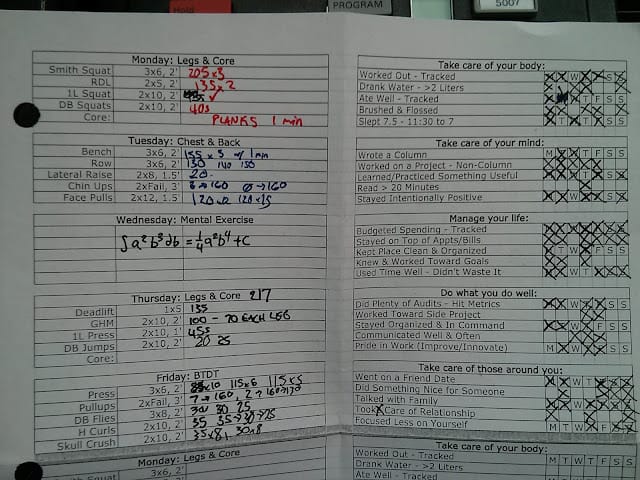 Hold
PROGRAM
5007
Monday: Legs & Core
Smith Squat 3x6, 2' 205x3
RDL 2x5, 2' 135x2
1L Squat 2x10, 2'
DB Squats 2x10, 2' 40s
Core: PLANKS 1 min
Tuesday: Chest & Back
Bench 3x6, 2' 155x5 w/ 1 min
Row 3x6, 2' 130 140 150
Lateral Raise 2x8, 1.5' 20
Chin Ups 2xFail, 3' → 160
Face Pulls 2x12, 1.5' 120 120x15
Wednesday: Mental Exercise
∫a²b³db = 1/4a²b⁴+c
Thursday: Legs & Core 217
Deadlift 1x5 135
GHM 2x10, 2' 100 - 70 EACH LEG
1L Press 2x10, 1' 45s
DB Jumps 2x10, 2' 20 25
Core:
Friday: BTDT
Press 3x6, 2' 115x6 115x5
Pullups 2xFail, 3' 7→160,
DB Flies 3x8, 2' 30 30 25
H Curls 2x10, 2' 55
Skull Crush 2x10, 2' 30x8
Monday: Legs & Core
Smith Squat 3x6, 2'
Take care of your body:
Worked Out - Tracked
Drank Water - >2 Liters
Ate Well - Tracked
Brushed & Flossed
Slept 7.5 - 11:30 to 7
Take care of your mind:
Wrote a Column
Worked on a Project - Non-Column
Learned/Practiced Something Useful
Read > 20 Minutes
Stayed Intentionally Positive
Manage your life:
Budgeted Spending - Tracked
Stayed on Top of Appts/Bills
Kept Place Clean & Organized
Knew & Worked Toward Goals
Used Time Well - Didn't Waste It
Do what you do well:
Did Plenty of Audits - Hit Metrics
Worked Toward Side Project
Stayed Organized & In Command
Communicated Well & Often
Pride in Work (Improve/Innovate)
Take care of those around you:
Went on a Friend Date
Did Something Nice for Someone
Talked with Family
Took Care of Relationship
Focused Less on Yourself
Take care of your body:
Worked Out - Tracked
Drank Water - >2 Liters M T W T F S S
Ate Well - Tracked